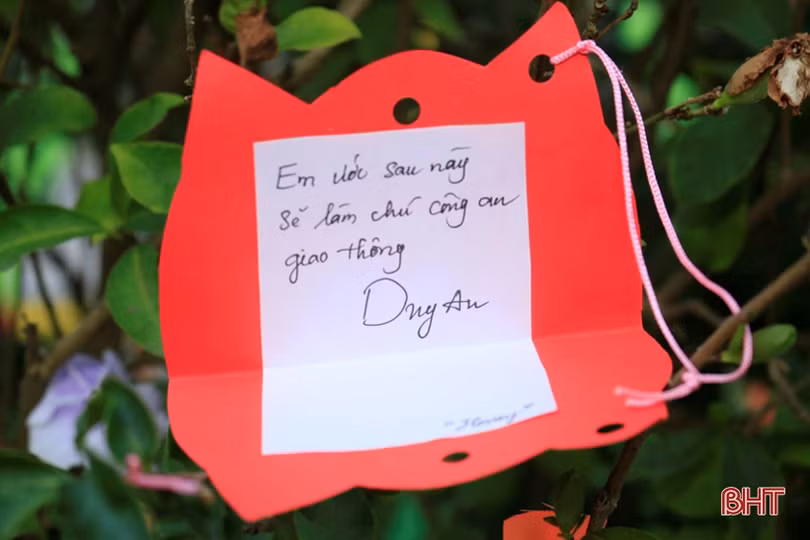 Em ước sau này
sẽ làm chú công an
giao thông
Duy An
BHT